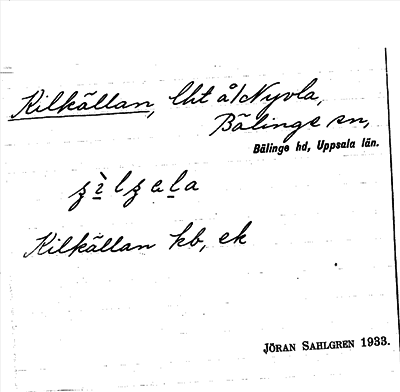 Kilkällan, lht å/Nyvla,
Bälinge sn,
Bälinge hd, Uppsala län.
Kilkällan kb, ek
JÖRAN SAHLGREN 1933.